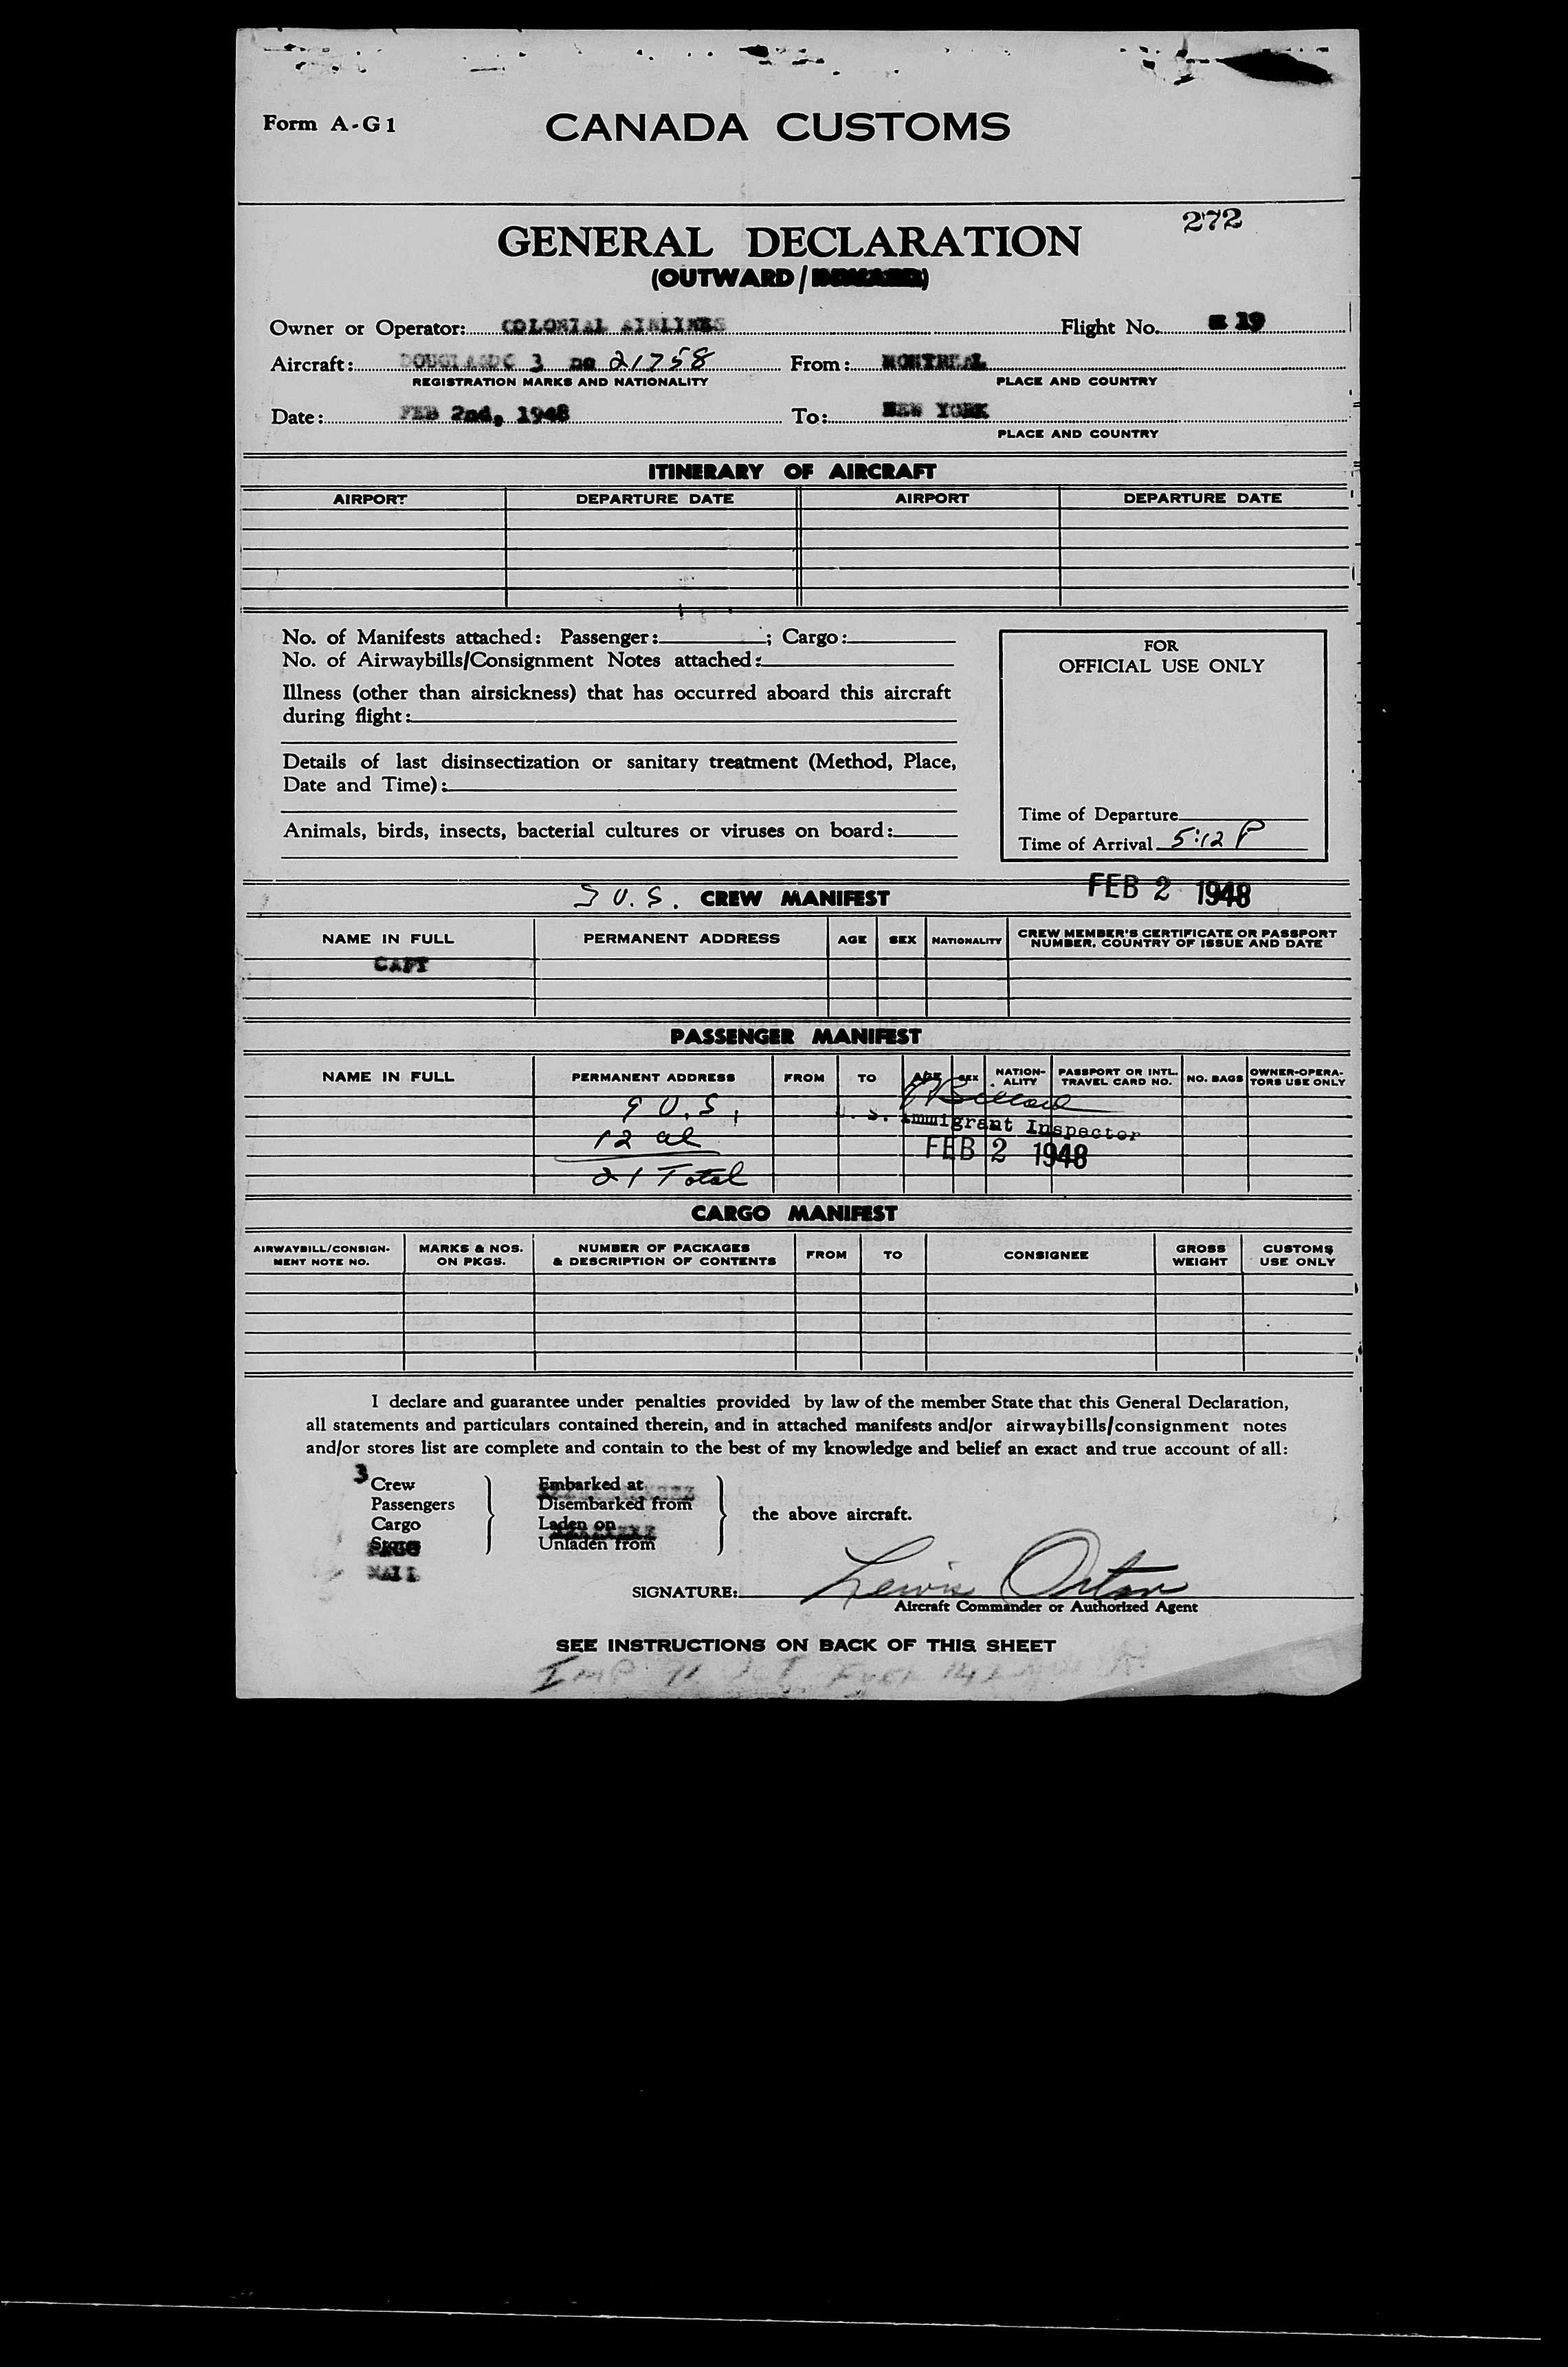 Form A-G1
CANADA CUSTOMS
272
GENERAL DECLARATION
(OUTWARD/
Owner or Operator: COLONIAL AIRLINES Flight No. 19
Aircraft: DOUGLASDC 3 no 21758 From: MONTREAL
REGISTRATION MARKS AND NATIONALITY PLACE AND COUNTRY
Date: FEB 2nd, 1948 To: NEW YORK
PLACE AND COUNTRY
ITINERARY OF AIRCRAFT
AIRPORT DEPARTURE DATE AIRPORT DEPARTURE DATE
No. of Manifests attached: Passenger: ; Cargo:
No. of Airwaybills/Consignment Notes attached:
Illness (other than airsickness) that has occurred aboard this aircraft
during flight:
Details of last disinsectization or sanitary treatment (Method, Place,
Date and Time):
Animals, birds, insects, bacterial cultures or viruses on board:
FOR
OFFICIAL USE ONLY
Time of Departure
Time of Arrival 5:12 P
FEB 2 1948
U.S. CREW MANIFEST
NAME IN FULL PERMANENT ADDRESS AGE SEX NATIONALITY CREW MEMBER'S CERTIFICATE OR PASSPORT
NUMBER, COUNTRY OF ISSUE AND DATE
CAPT
PASSENGER MANIFEST
NAME IN FULL PERMANENT ADDRESS FROM TO AGE SEX NATION-
ALITY PASSPORT OR INTL.
TRAVEL CARD NO. NO. BAGS OWNER-OPERA-
TORS USE ONLY
9 U.S.
U. S. Immigrant Inspector
12 al
FEB 2 1948
21 Total
CARGO MANIFEST
AIRWAYBILL/CONSIGN-
MENT NOTE NO. MARKS & NOS.
ON PKGS. NUMBER OF PACKAGES
& DESCRIPTION OF CONTENTS FROM TO CONSIGNEE GROSS
WEIGHT CUSTOMS
USE ONLY
I declare and guarantee under penalties provided by law of the member State that this General Declaration,
all statements and particulars contained therein, and in attached manifests and/or airwaybills/consignment notes
and/or stores list are complete and contain to the best of my knowledge and belief an exact and true account of all:
3 Crew Embarked at
Passengers Disembarked from
the above aircraft.
Cargo Laden on
Unladen from
MAIL
SIGNATURE: Lewis Orton
Aircraft Commander or Authorized Agent
SEE INSTRUCTIONS ON BACK OF THIS SHEET